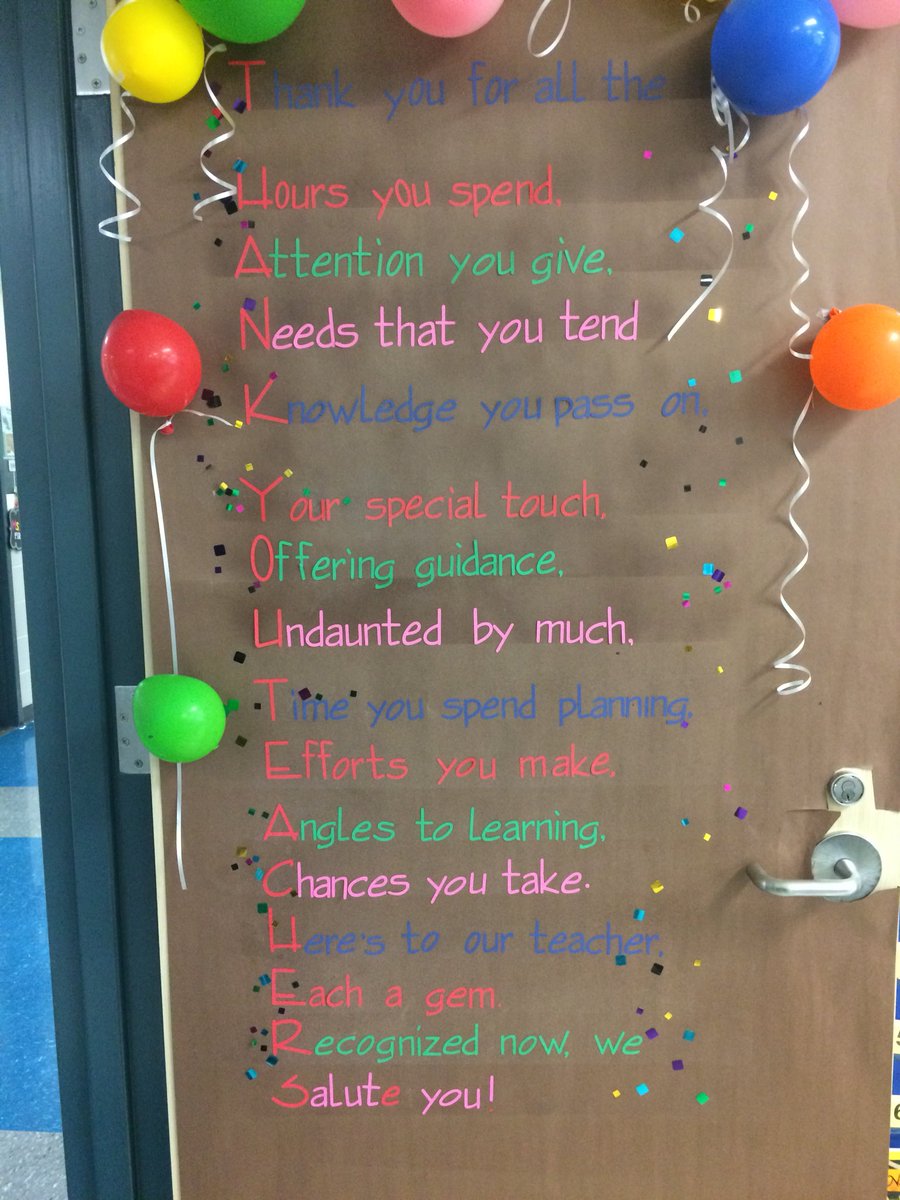 Thank you for all the
Hours you spend,
Attention you give,
Needs that you tend
Knowledge you pass on,
Your special touch,
Offering guidance,
Undaunted by much,
Time you spend planning,
Efforts you make,
Angles to learning,
Chances you take.
Here's to our teacher,
Each a gem.
Recognized now, we
Salute you!